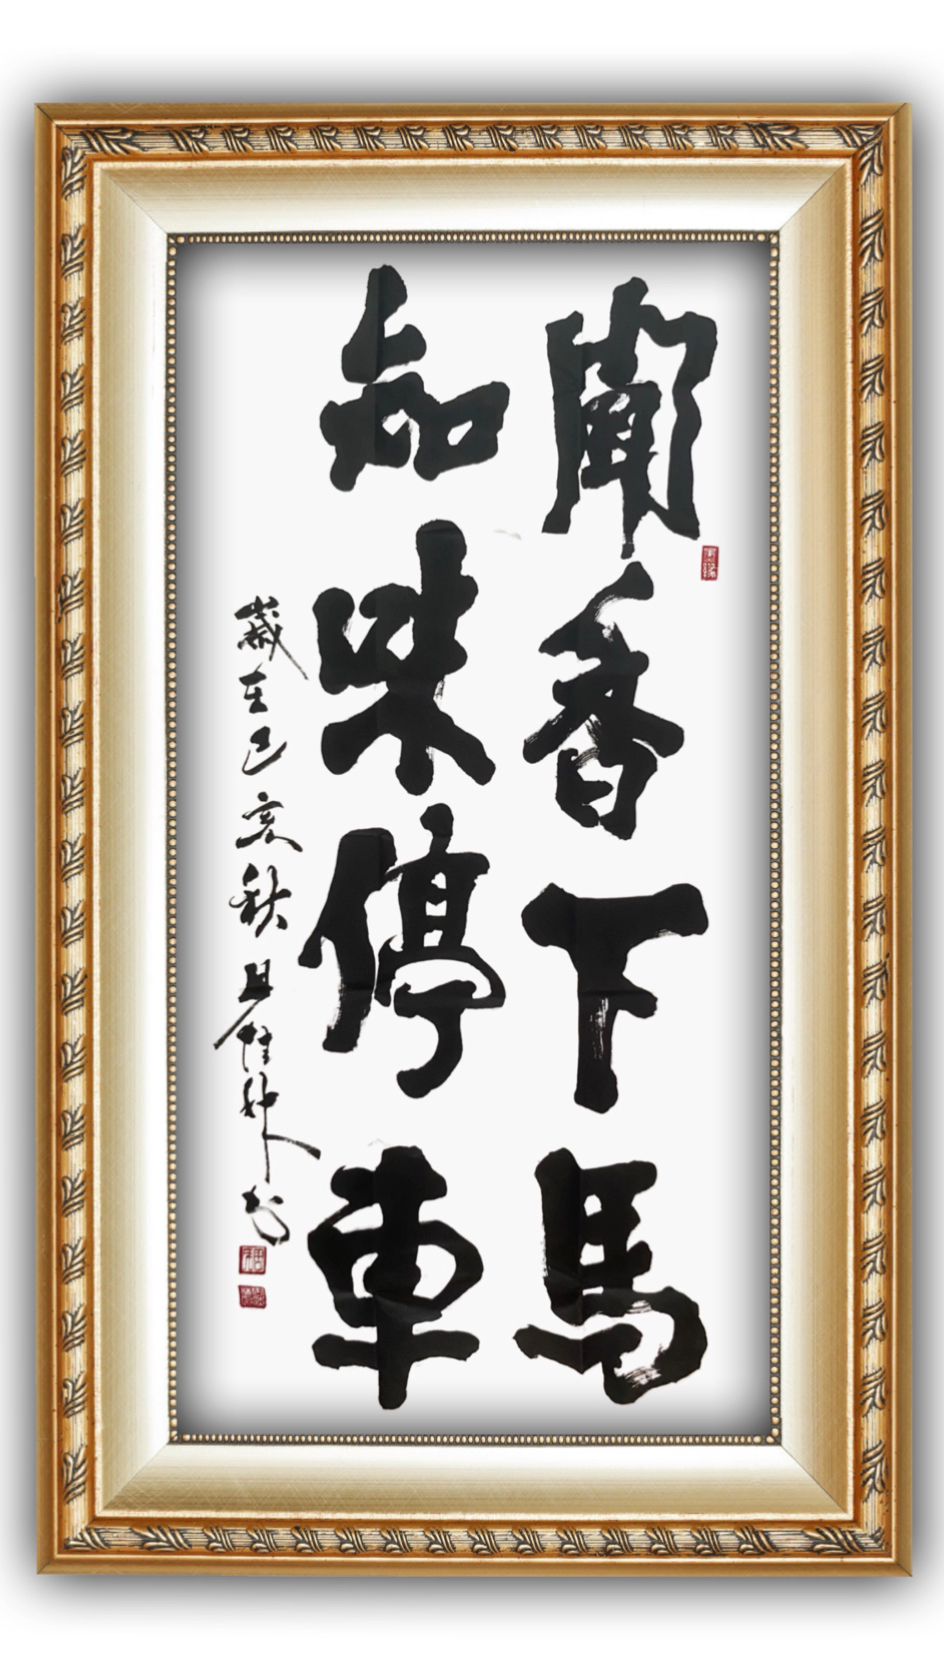 聞香下馬
知味停車
歲在己亥秋
書